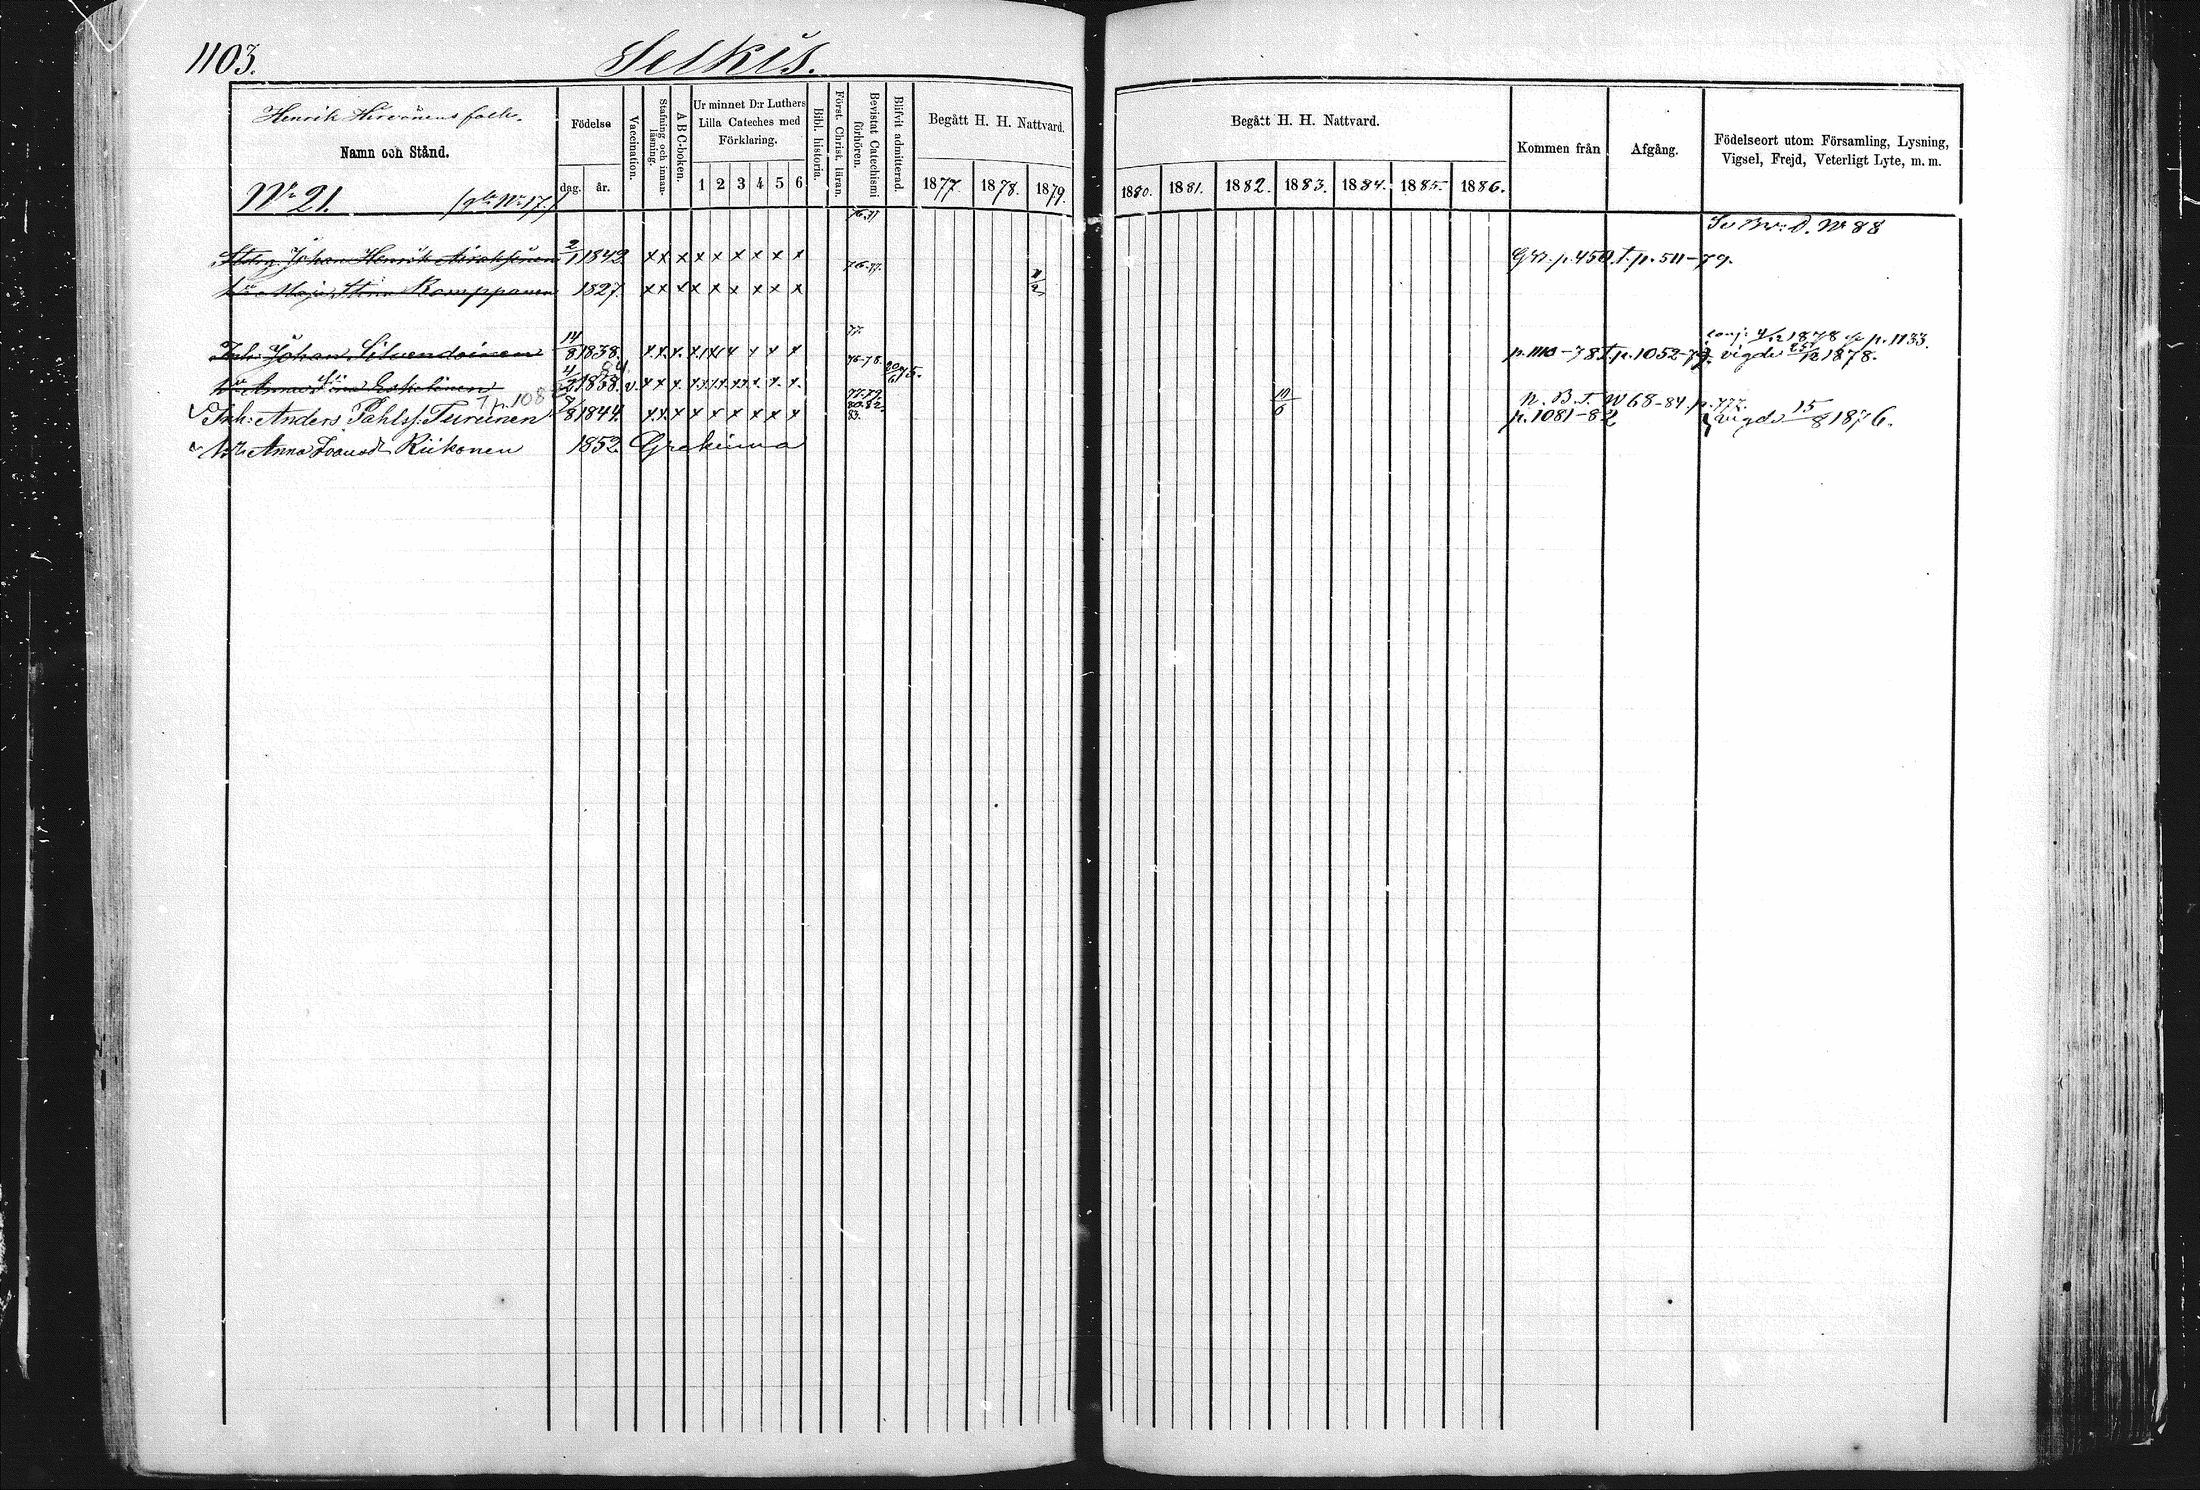 1103.
Selkis.
Henrik Hirvonens folk.
Namn och Stånd.
Nr 21. (gl. Nr 17.)
Födelse
dag. år.
Vaccination.
Stafning och innanläsning.
ABC-boken.
Ur minnet D:r Luthers Lilla Cateches med Förklaring.
1 2 3 4 5 6
Bibl. historia.
Först. Christ. läran.
Bevistat Catechismi förhören.
Blifvit admitterad.
Begått H. H. Nattvard.
1877. 1878. 1879.
Begått H. H. Nattvard.
1880. 1881. 1882. 1883. 1884. 1885. 1886.
Kommen från
Afgång.
Födelseort utom Församling, Lysning, Vigsel, Frejd, Veterligt Lyte, m. m.
76.77
Se Br: D. Nr 88
Johan Henrik 2/1 1842 x x x x x x x x x p. 450 T. p. 511-79.
76-77.
Maja Stina Romppanen 1827. x x x x x x x x x
77.
conj: 4/12 1878 p. 1133.
Inh: Johan Silvendoinen 14/8 1838. x x x x x x x x x p. 1110-78 T. p. 1052-79. vigde 25/12 1878.
76-78.
Anna Eskelinen 1838. v. x x x x x x x x x 20/6 75.
T p. 108
77.79. 80.82. 83.
n. B. T. W 68-84. p. 777.
Inh: Anders Pahlsf: Turunen 8/8 1844. x x x x x x x x x 10/6 p. 1081-82 vigde 15/8 1876.
Anna Riikonen 1852. Grekinna